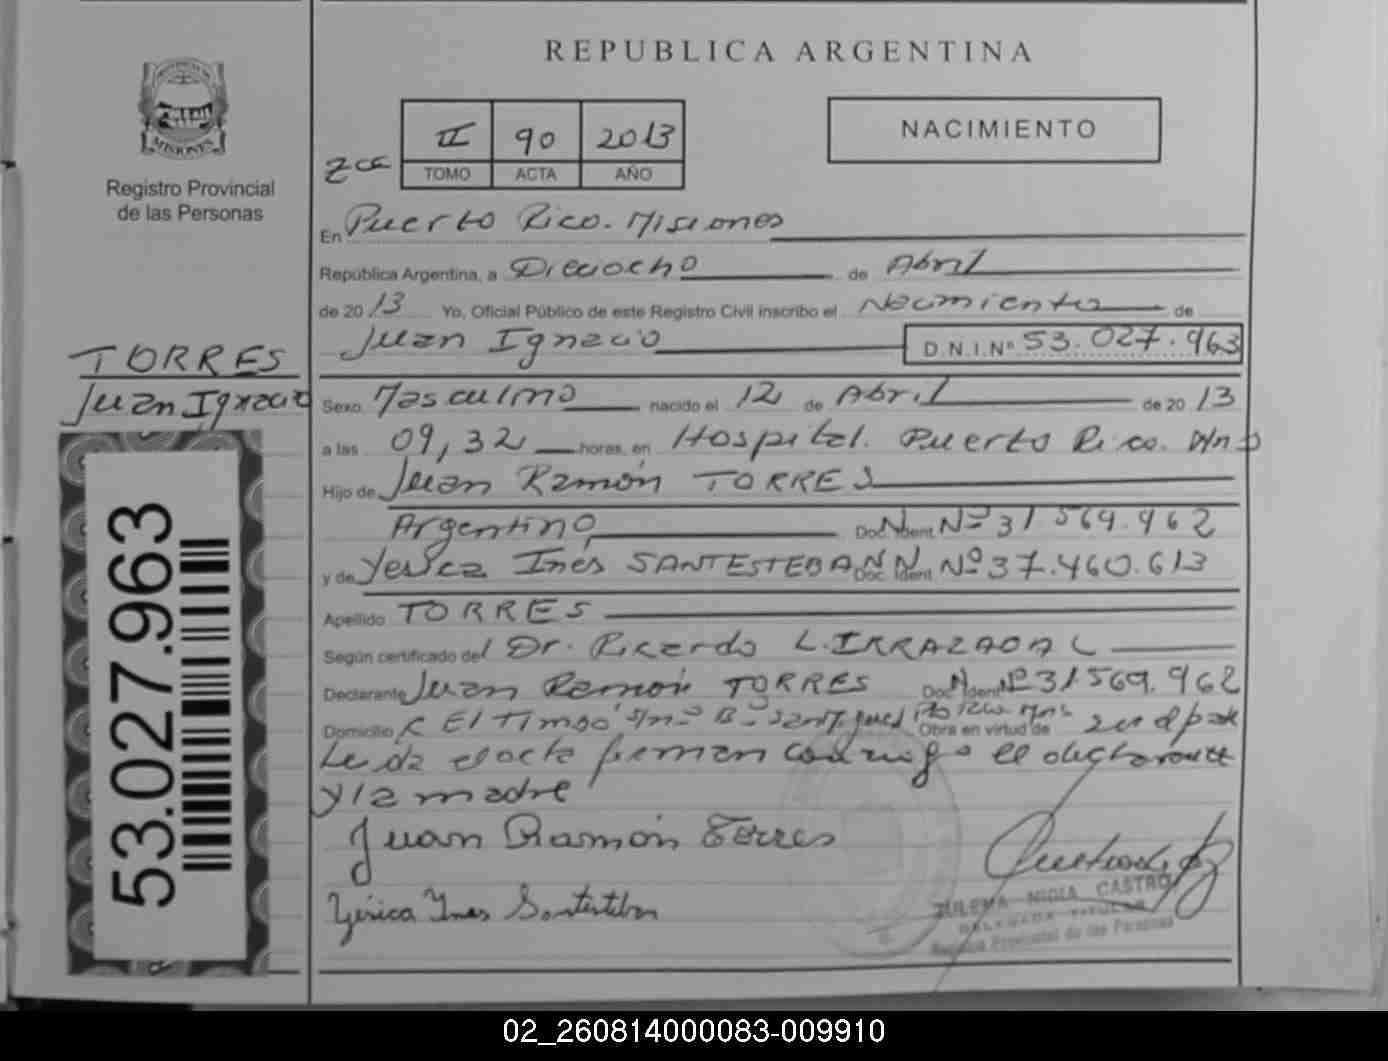 REPUBLICA ARGENTINA
MISIONES
Registro Provincial
de las Personas
II 90 2013
TOMO ACTA AÑO
NACIMIENTO
En Puerto Rico. Misiones
República Argentina, a Dieciocho de Abril
de 2013 Yo, Oficial Público de este Registro Civil inscribo el Nacimiento de
Juan Ignacio D.N.I.Nº 53.027.963
TORRES
Juan Ignacio
Sexo Masculino nacido el 12 de Abril de 2013
a las 09,32 horas, en Hospital. Puerto Rico. Mns
Hijo de Juan Ramón TORRES
Argentino, Doc. Ident. Nº 31.569.962
y de Yesica Inés SANTESTEBAN Doc. Ident. Nº 37.460.613
Apellido TORRES
Según certificado del Dr. Ricardo L. IRRAZABAL
Declarante Juan Ramón TORRES Doc. Ident. Nº 31569.962
Domicilio El Timbó Obra en virtud de
Leída el acta firman conmigo el declarante
y la madre
Juan Ramón Torres
Yesica Ines Santesteban
ZULEMA NIDIA CASTRO
DELEGADA TITULAR
Registro Provincial de las Personas
53.027.963
02_260814000083-009910